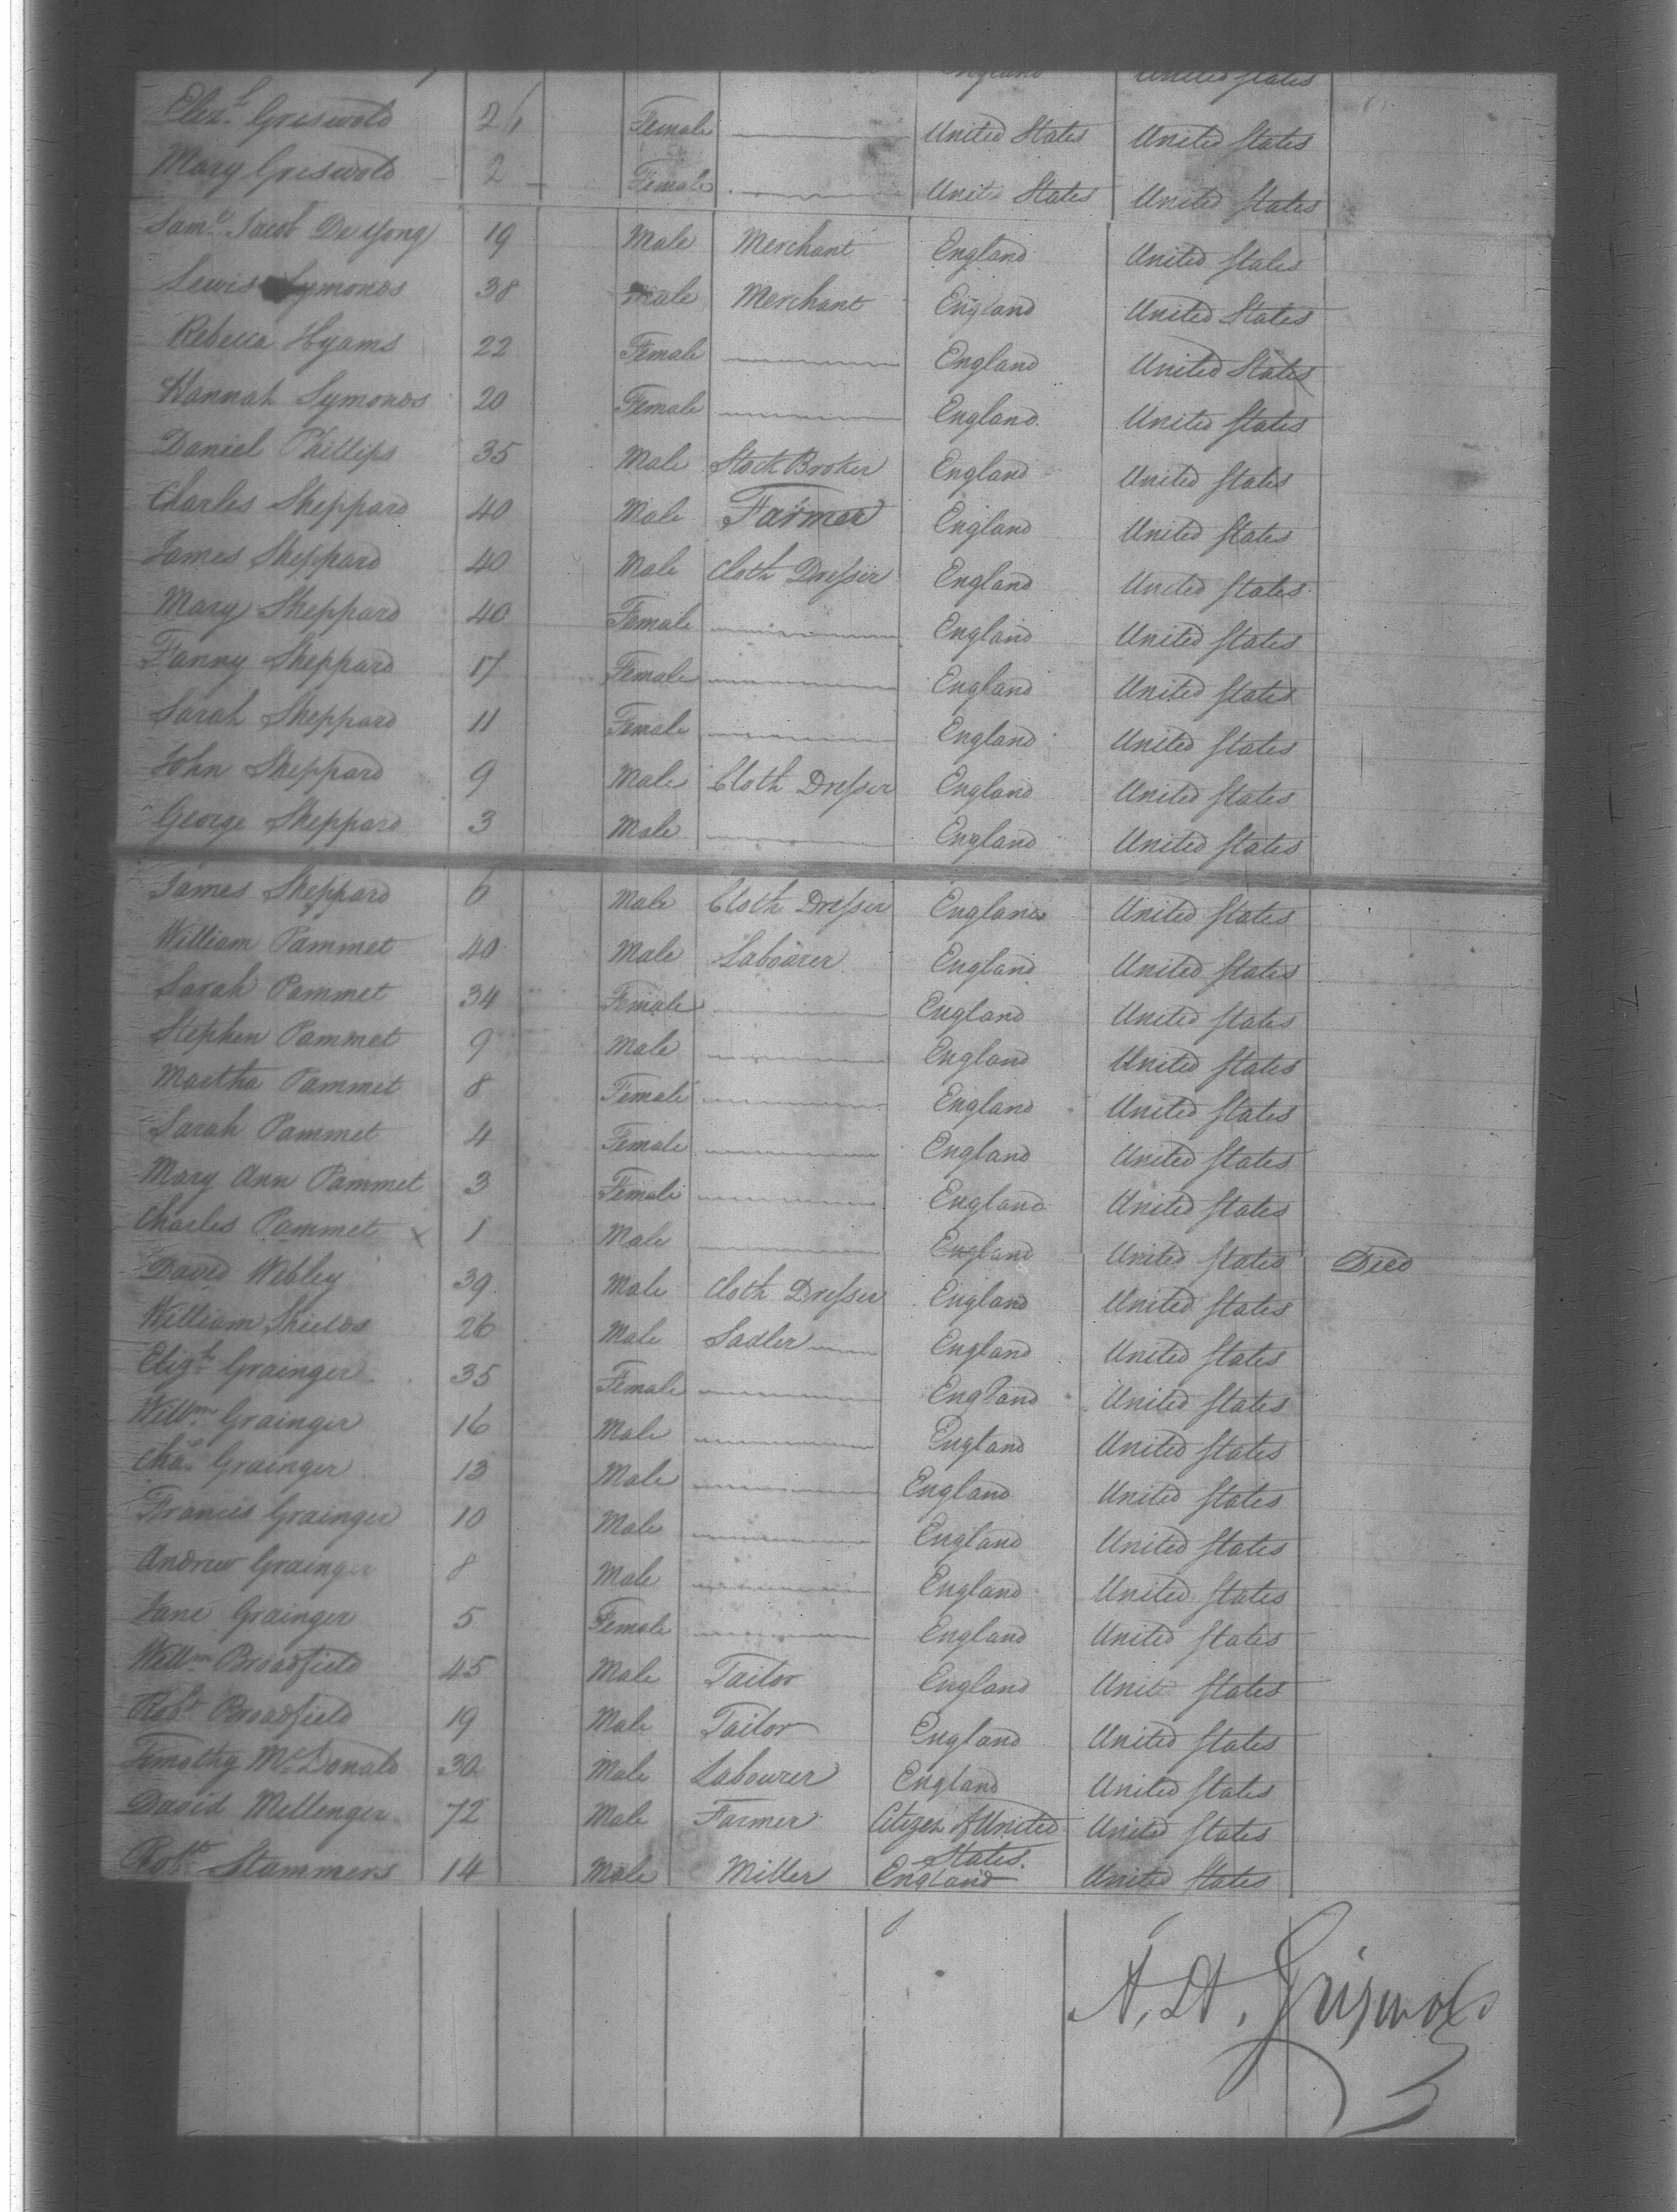 England United States
Eliz.t Griswold 26 Female United States United States
Mary Griswold 2 Female United States United States
Sam.l Jacob De Yong 19 Male Merchant England United States
Lewis Symonds 38 Male Merchant England United States
Rebecca Hyams 22 Female England United States
Hannah Symonds 20 Female England United States
Daniel Phillips 35 Male Stock Broker England United States
Charles Sheppard 40 Male Farmer England United States
James Sheppard 40 Male Cloth Dresser England United States
Mary Sheppard 40 Female England United States
Fanny Sheppard 17 Female England United States
Sarah Sheppard 11 Female England United States
John Sheppard 9 Male Cloth Dresser England United States
George Sheppard 3 Male England United States
James Sheppard 6 Male Cloth Dresser England United States
William Pammet 40 Male Labourer England United States
Sarah Pammet 34 Female England United States
Stephen Pammet 9 Male England United States
Martha Pammet 8 Female England United States
Sarah Pammet 4 Female England United States
Mary Ann Pammet 3 Female England United States
Charles Pammet x 1 Male England United States Died
David Webley 39 Male Cloth Dresser England United States
William Shields 26 Male Sadler England United States
Eliz.t Grainger 35 Female England United States
Willm Grainger 16 Male England United States
Cha.s Grainger 13 Male England United States
Francis Grainger 10 Male England United States
Andrew Grainger 8 Male England United States
Jane Grainger 5 Female England United States
Willm Broadfield 45 Male Tailor England United States
Robt Broadfield 19 Male Tailor England United States
Timothy McDonald 30 Male Labourer England United States
David Mellenger 72 Male Farmer Citizen of United States United States
Robt Stammers 14 Male Miller England United States
Griswold